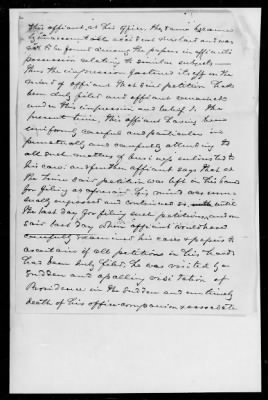 this affiant, at his office, the same became
by some unaccountable accident mislaid and was
not to be found among the papers in affiants
possession relating to similar subjects —
thus the impression fastened itself on the
mind of affiant that said petition had
been duly filed and affiant remained
under this impression and belief to the
present time, this affiant having been
uniformly careful and particular in
punctually and carefully attending to
all such matters of business entrusted to
his care. and further affiant says that at
the time said petition was left in his hands
for filing as aforesaid, his mind was unu-
sually engrossed and continued so, until
the last day for filing such petitions, and on
said last day when affiant would have
carefully examined his cases & papers to
ascertain if all petitions in his hands
had been duly filed, he was visited by a
sudden and appalling visitation of
Providence in the sudden and untimely
death of his office-companion & associate